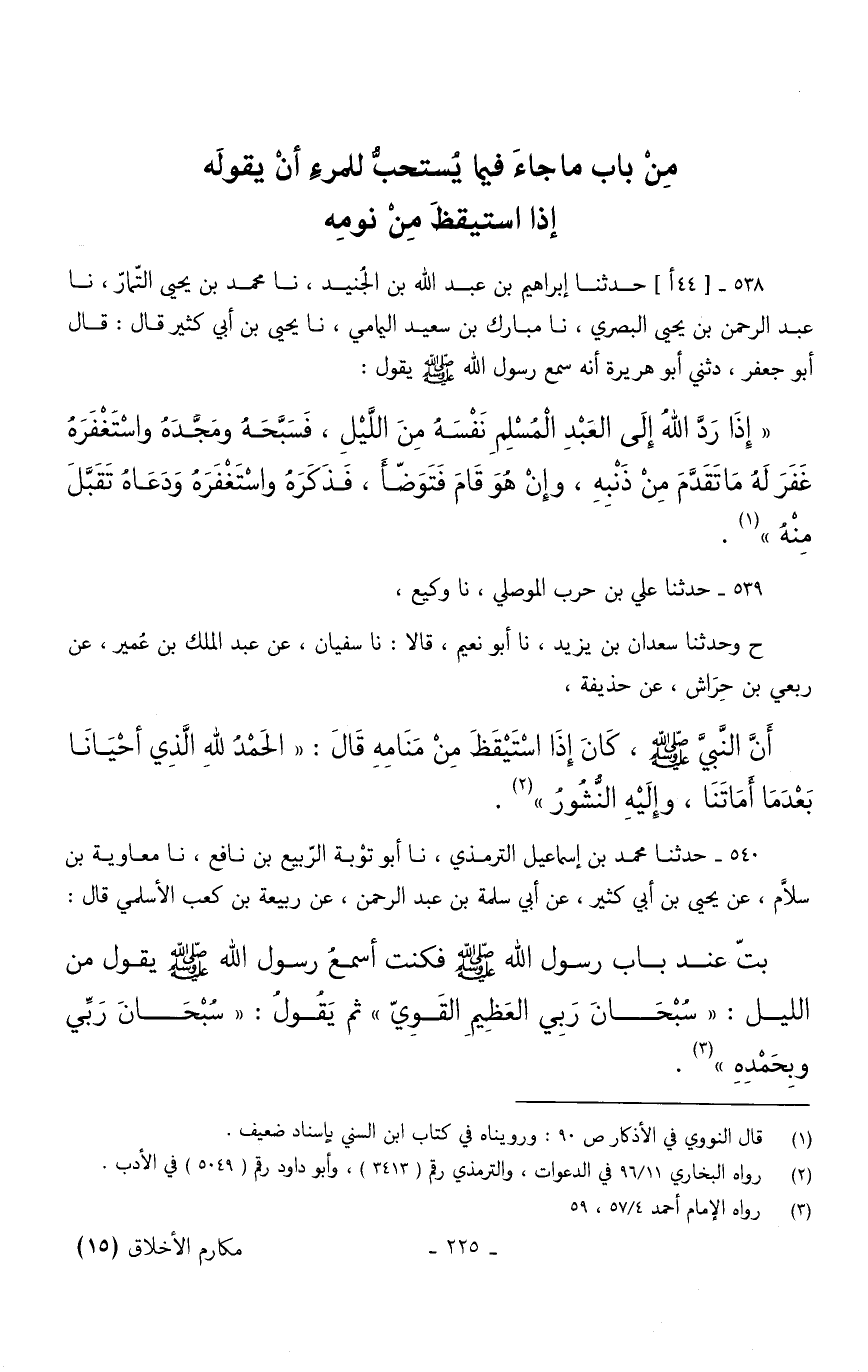 مِنْ باب ما جاءَ فيما يُستحبُّ للمرءِ أنْ يقولَه
إذا استيقظَ مِنْ نومِه
٥٣٨ ـ [ ٤٤أ ] حـدثنـا إبراهيم بن عبـد الله بن الجُنيـد ، نـا محمد بن يحيى التّمارّ ، نـا
عبد الرحمن بن يحيى البصري ، نـا مبارك بن سعيد اليامي ، نـا يحيى بن أبي كثير قال : قـال
أبو جعفر ، دثني أبو هريرة أنه سمع رسول الله ﷺ يقول :
« إِذَا رَدَّ اللهُ إِلَى العَبْدِ الْمُسْلِمِ نَفْسَـهُ مِنَ اللَّيْلِ ، فَسَبَّحَـهُ ومَجَّدَهُ واسْتَغْفَرَهُ
غَفَرَ لَهُ مَاتَقَدَّمَ مِنْ ذَنْبِهِ ، وإِنْ هُوَ قَامَ فَتَوَضّـأَ ، فَـذَكَرَهُ واسْتَغْفَرَهُ وَدَعَـاهُ تَقَبَّلَ
مِنْهُ »(١) .
٥٣٩ ـ حدثنا علي بن حرب الموصلي ، نا وكيع ،
ح وحدثنا سعدان بن يزيد ، نا أبو نعيم ، قالا : نا سفيان ، عن عبد الملك بن عُمير ، عن
ربعي بن حِرَاش ، عن حذيفة ،
أَنَّ النَّبِيَّ ﷺ ، كَانَ إِذَا اسْتَيْقَظَ مِنْ مَنَامِهِ قَالَ : « الحَمْدُ للهِ الَّذِي أحْيَـانَـا
بَعْدَمَا أَمَاتَنَا ، وإِلَيْهِ النُّشُورُ »(٢) .
٥٤٠ ـ حدثنـا محمد بن إسماعيل الترمـذي ، نـا أبو توْبـة الرّبيع بن نـافع ، نـا معـاويـة بن
سلاَّم ، عن يحيى بن أبي كثير ، عن أبي سلمة بن عبد الرحمن ، عن ربيعة بن كعب الأسلمي قال :
بتّ عنـد بـاب رسـول الله ﷺ فكنت أسمـعُ رسـول الله ﷺ يقـول من
الليـل : « سُبْحَـانَ رَبِي العَظِيمِ القَـوِيّ » ثم يَقُـولُ : « سُبْحَـانَ رَبِّي
وبِحَمْدِهِ »(٣) .
(١) قال النووي في الأذكار ص ٩٠ : ورويناه في كتاب ابن السني بإسناد ضعيف .
(٢) رواه البخاري ٩٦/١١ في الدعوات ، والترمذي رقم ( ٣٤١٣ ) ، وأبو داود رقم ( ٥٠٤٩ ) في الأدب .
(٣) رواه الإمام أحمد ٥٧/٤ ، ٥٩
ـ ٢٢٥ ـ مكارم الأخلاق (١٥)